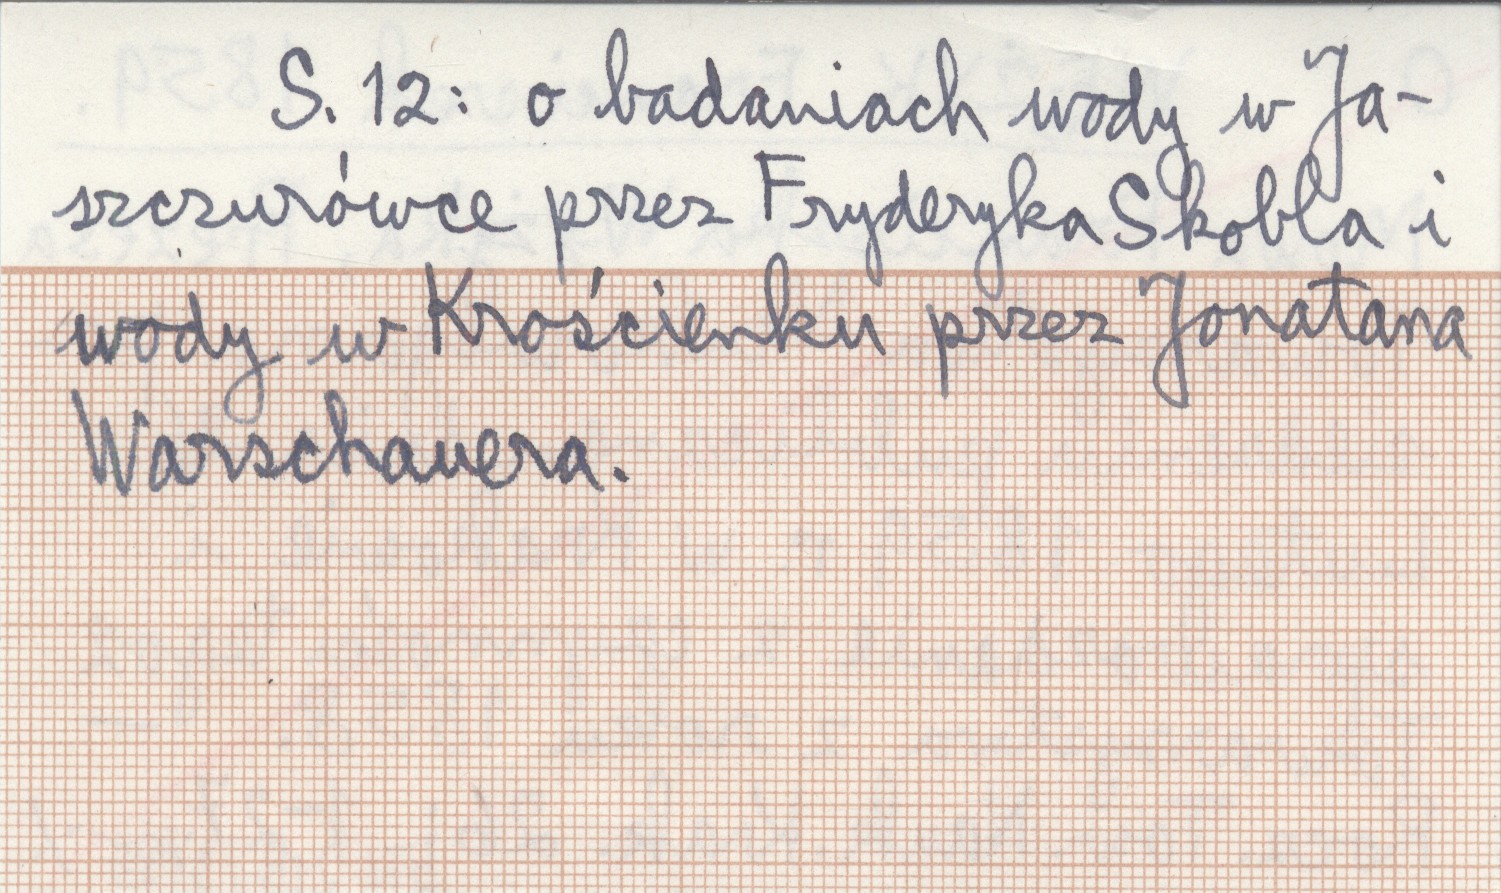 S. 12: o badaniach wody w Ja-
szczurówce przez Fryderyka Skobla i
wody w Krościenku przez Jonatana
Warschauera.